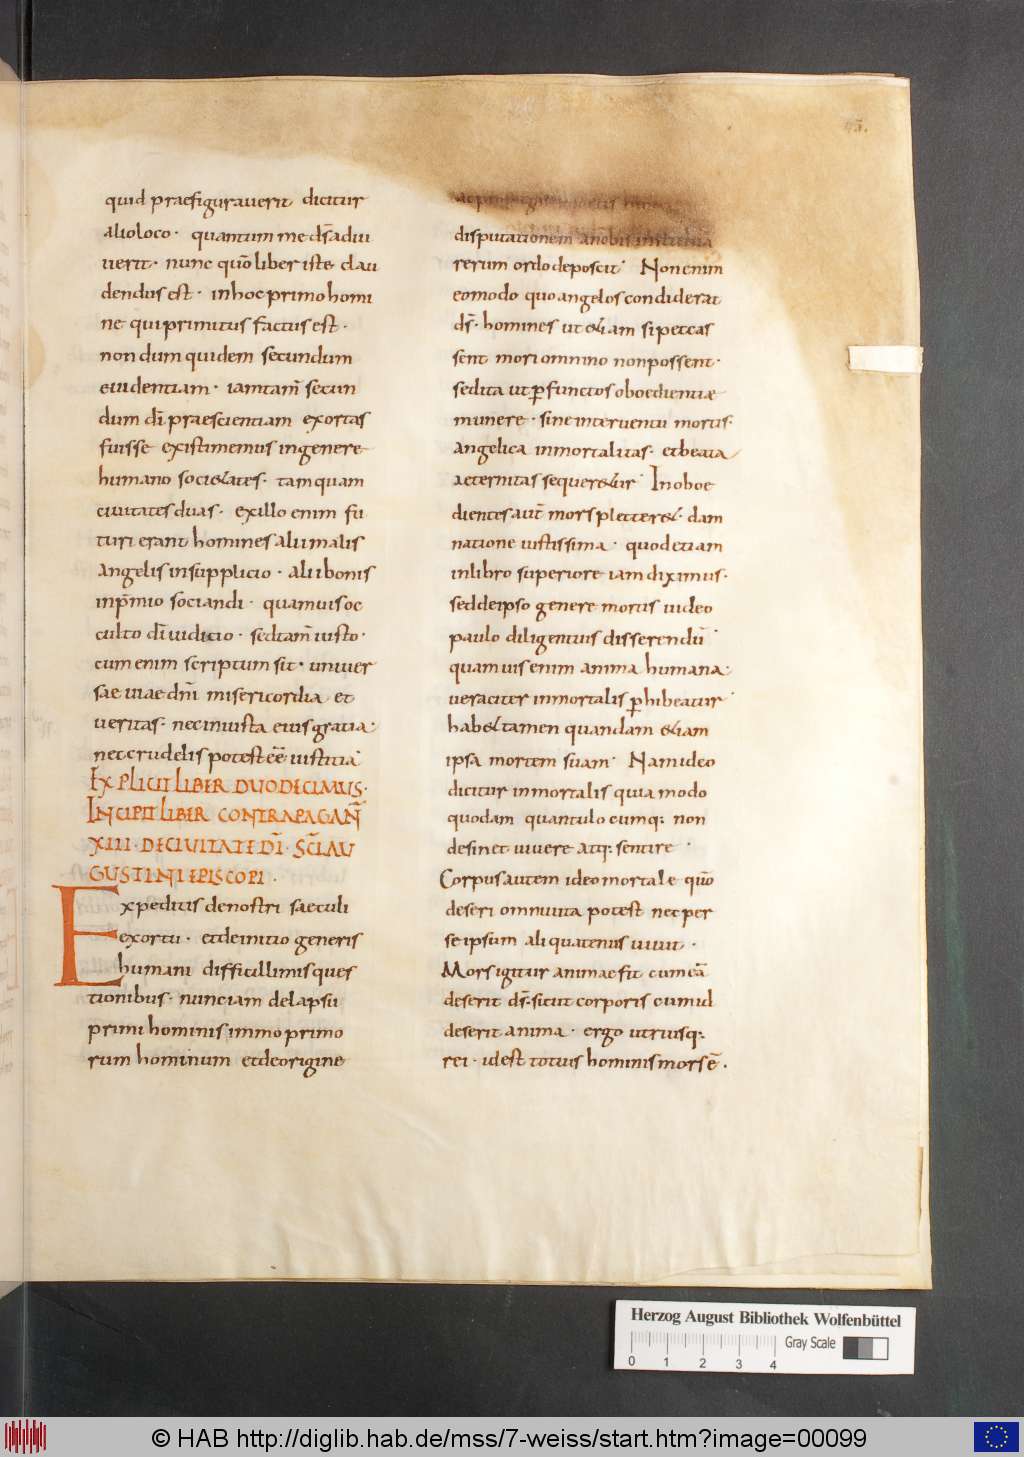 quid praefigurauerit dicitur
alio loco · quantum me d̅s̅ adiu
uerit · nunc qūo liber iste clau
dendus est · in hoc primo homi
ne qui primitus factus est ·
non dum quidem secundum
euidentiam · iam tam̅ secun
dum d̅i̅ praescientiam exortas
fuisse existimemus in genere
humano societates · tamquam
ciuitates duas · ex illo enim fu
turi erant homines alii malis
angelis in supplicio · alii bonis
in p̅mio sociandi · quamuis oc
culto d̅i̅ iudicio · sed tam̅ iusto ·
cum enim scriptum sit · uniuer
sae uiae dn̅i misericordia et
ueritas · nec iniusta eius gratia ·
nec crudelis potest ee̅ iustitia
EXPLICIT LIBER DUODECIMUS ·
INCIPIT LIBER CONTRA PAGAN̅
XIII · DE CIUITATE D̅I̅ · SC̅I AU
GUSTINI EPISCOPI ·
Expeditis de nostri saeculi
exortu · et de initio generis
humani difficillimis ques
tionibus · nunc iam de lapsu
primi hominis immo primo
rum hominum et de origine
disputationem a nobis instituta
rerum ordo deposcit · Non enim
eo modo quo angelos condiderat
d̅s̅ · homines ut etiam si peccas
sent mori omnino non possent ·
sed ita ut ꝑfunctos oboedientiæ
munere · sine interuentu mortis ·
angelica inmortalitas · et beata
aeternitas sequeretur · Inoboe
dientes aut̅ mors plecteret · dam
natione iustissima · quod etiam
in libro superiore iam diximus ·
sed de ipso genere mortis uideo
paulo diligentius disserendu̅ ·
quamuis enim anima humana ·
ueraciter inmortalis ꝑhibeatur ·
habet tamen quandam etiam
ipsa mortem suam · Nam ideo
dicitur inmortalis quia modo
quodam quantulo cumq: non
desinet uiuere atq: sentire ·
Corpus autem ideo mortale qūo
deseri omni uita potest nec per
se ipsum aliquatenus uiuit ·
Mors igitur animae fit cum ea̅
deserit d̅s̅ · sicut corporis cum id
deserit anima · ergo utriusq:
rei · id est totius hominis mors e̅ ·
Herzog August Bibliothek Wolfenbüttel
Gray Scale
0 1 2 3 4
© HAB http://diglib.hab.de/mss/7-weiss/start.htm?image=00099